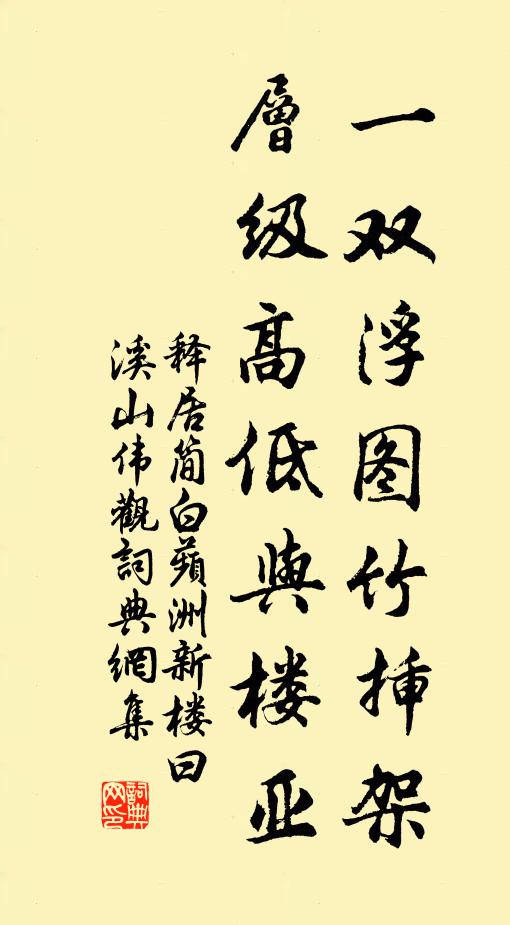 一双浮图竹插架
層级高低與楼亚
释居简白蘋洲新楼曰
溪山伟觀詞典網集
詞典网印